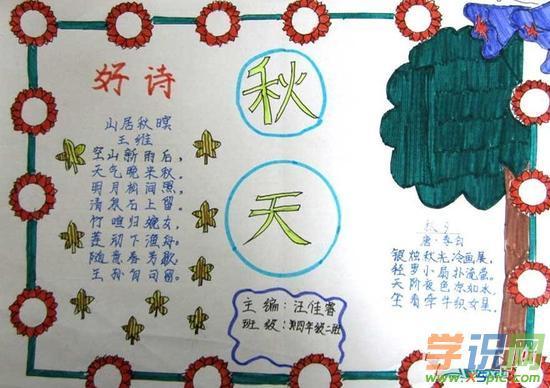 好诗
山居秋暝
王维
空山新雨后,
天气晚来秋。
明月松间照,
清泉石上留。
竹喧归晚女,
莲动下渔舟。
随意春芳歇,
王孙自可留。
秋
天
主编:汪佳睿
班级:四年级二班
秋夕
唐·
银烛秋光冷画屏,
轻罗小扇扑流萤。
天阶夜色凉如水,
坐看牵牛织女星。
学识网
www.xspic.com